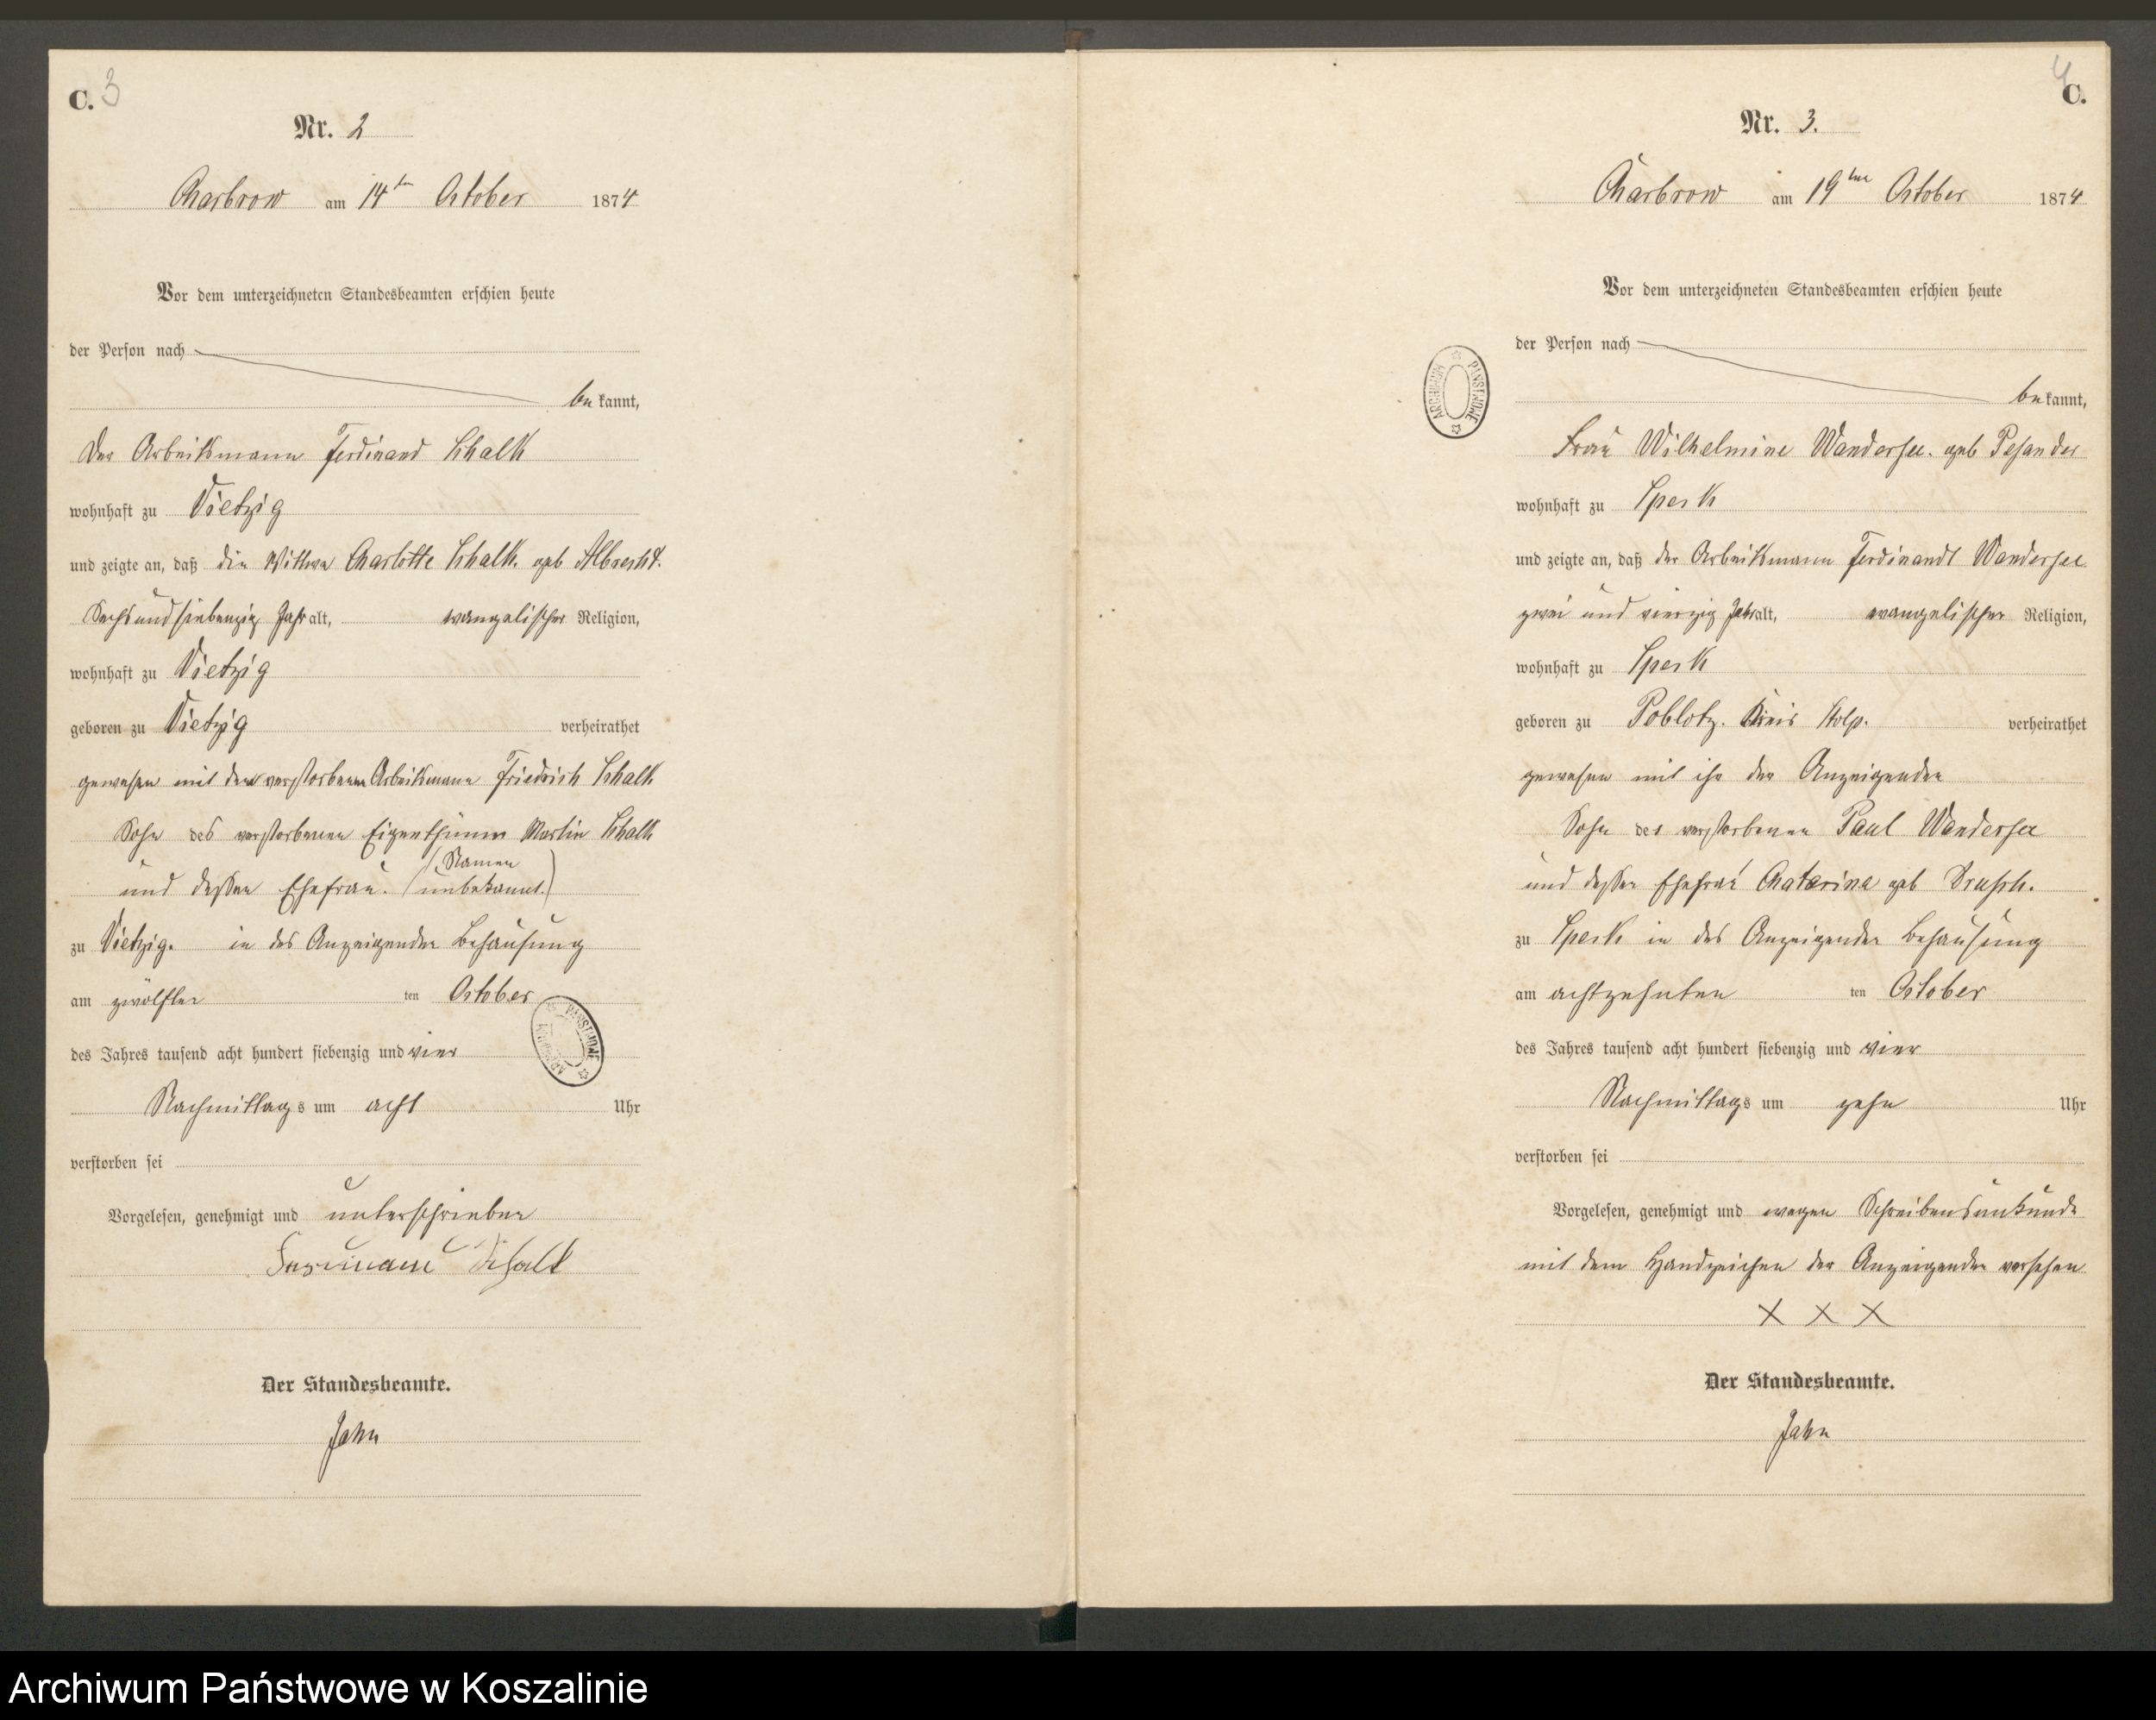 C. 3
Nr. 2
Charbrow am 14ten October 1874
Vor dem unterzeichneten Standesbeamten erschien heute
der Person nach
bekannt,
Der Arbeitsmann Ferdinand Schalk
wohnhaft zu Vietzig
und zeigte an, daß die Wittwe Charlotte Schalk. geb Albrecht.
Sechsundsiebenzig Jahr alt, evangelischer Religion,
wohnhaft zu Vietzig
geboren zu Vietzig verheirathet
gewesen mit dem verstorbenen Arbeitsmann Friedrich Schalk
Sohn des verstorbenen Eigenthümer Martin Schalk
und dessen Ehefrau. (Namen
unbekannt.)
zu Vietzig. in des Anzeigenden Behausung
am zwölften ten October
des Jahres tausend acht hundert siebenzig und vier
Nachmittags um acht Uhr
verstorben sei
Vorgelesen, genehmigt und unterschrieben
Ferdinand Schalk
Der Standesbeamte.
Jahn
4 C.
Nr. 3.
Charbrow am 19ten October 1874
Vor dem unterzeichneten Standesbeamten erschien heute
der Person nach
bekannt,
Frau Wilhelmine Wandersee. geb Pesander
wohnhaft zu Speck
und zeigte an, daß der Arbeitsmann Ferdinandt Wandersee
zwei und vierzig Jahr alt, evangelischer Religion,
wohnhaft zu Speck
geboren zu Poblotz. Kreis Stolp. verheirathet
gewesen mit ihr der Anzeigenden
Sohn des verstorbenen Paul Wandersee
und dessen Ehefrau Chatarina geb
zu Speck in des Anzeigenden Behausung
am achtzehnten ten October
des Jahres tausend acht hundert siebenzig und vier
Nachmittags um zehn Uhr
verstorben sei
Vorgelesen, genehmigt und wegen Schreibensunkunde
mit dem Handzeichen der Anzeigenden versehen
X X X
Der Standesbeamte.
Jahn
ARCHIWUM PAŃSTWOWE
ARCHIWUM PAŃSTWOWE
Archiwum Państwowe w Koszalinie